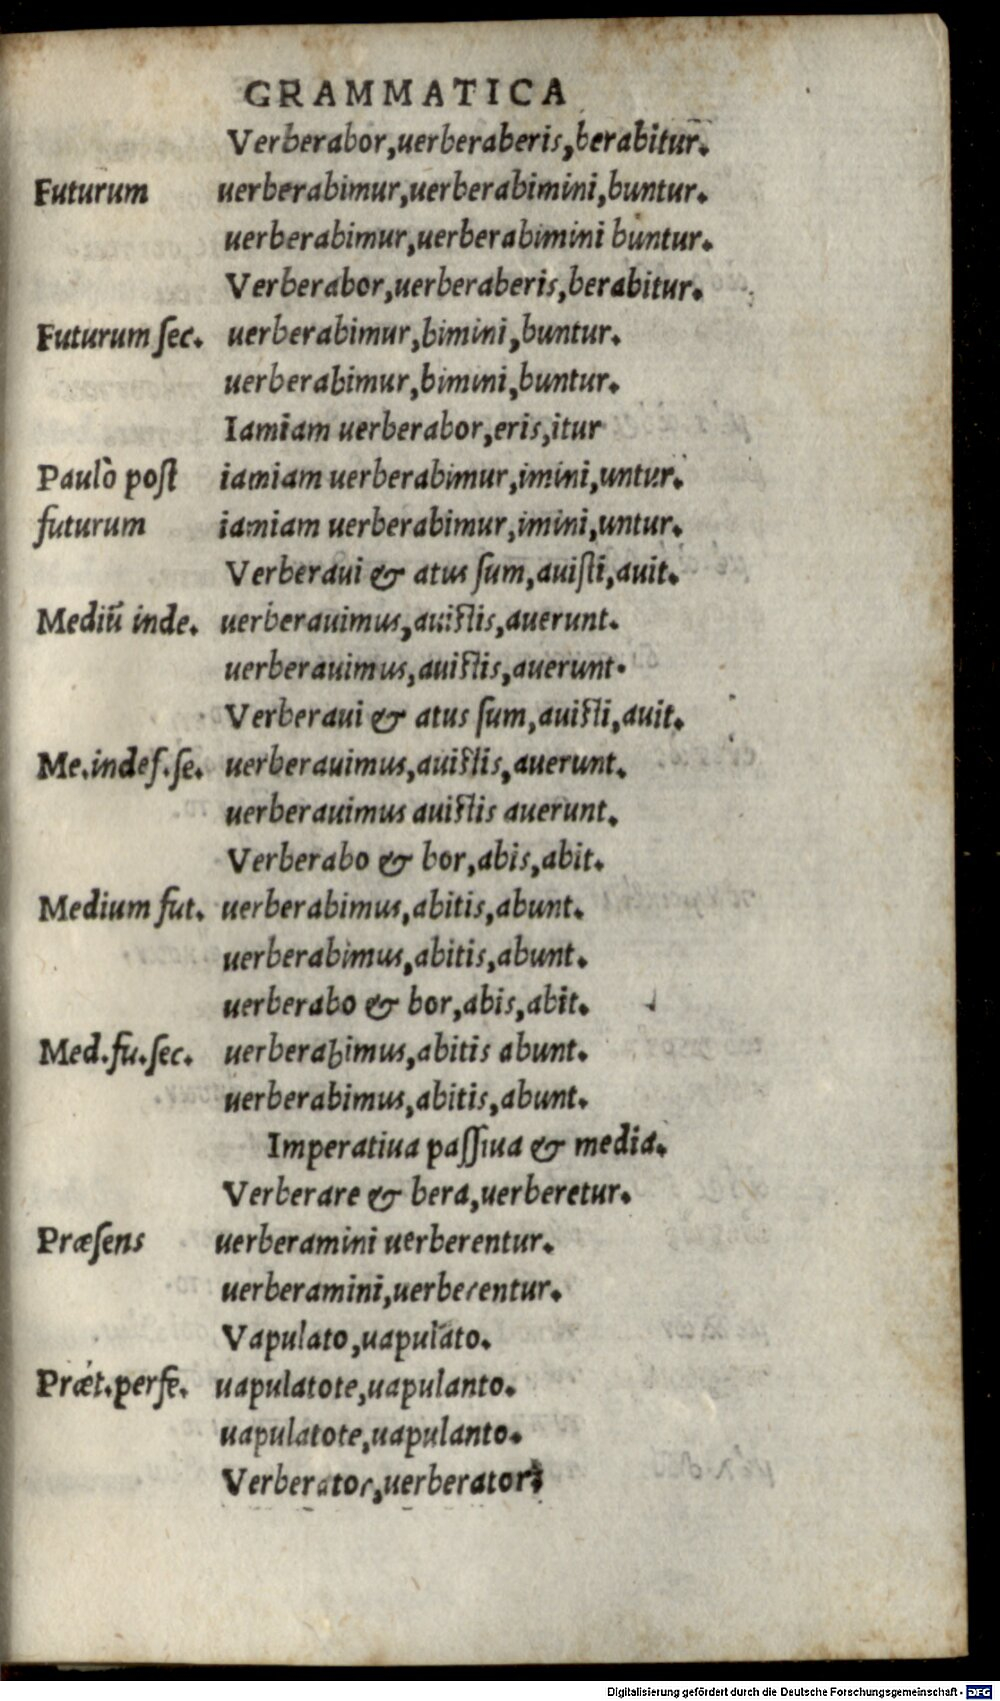 GRAMMATICA
Verberabor,uerberaberis,berabitur.
Futurum uerberabimur,uerberabimini,buntur.
uerberabimur,uerberabimini buntur.
Verberabor,uerberaberis,berabitur.
Futurum ſec. uerberabimur,bimini,buntur.
uerberabimur,bimini,buntur.
Iamiam uerberabor,eris,itur
Paulò poſt iamiam uerberabimur,imini,untur.
futurum iamiam uerberabimur,imini,untur.
Verberaui & atus ſum,auiſti,auit.
Mediũ inde. uerberauimus,auiſtis,auerunt.
uerberauimus,auiſtis,auerunt.
Verberaui & atus ſum,auiſti,auit.
Me.indef.ſe. uerberauimus,auiſtis,auerunt.
uerberauimus auiſtis auerunt.
Verberabo & bor,abis,abit.
Medium fut. uerberabimus,abitis,abunt.
uerberabimus,abitis,abunt.
uerberabo & bor,abis,abit.
Med.fu.ſec. uerberabimus,abitis abunt.
uerberabimus,abitis,abunt.
Imperatiua paſſiua & media.
Verberare & bera,uerberetur.
Præſens uerberamini uerberentur.
uerberamini,uerberentur.
Vapulato,uapulato.
Prǽt.perfe. uapulatote,uapulanto.
uapulatote,uapulanto.
Verberator,uerberator.
Digitalisierung gefördert durch die Deutsche Forschungsgemeinschaft - DFG